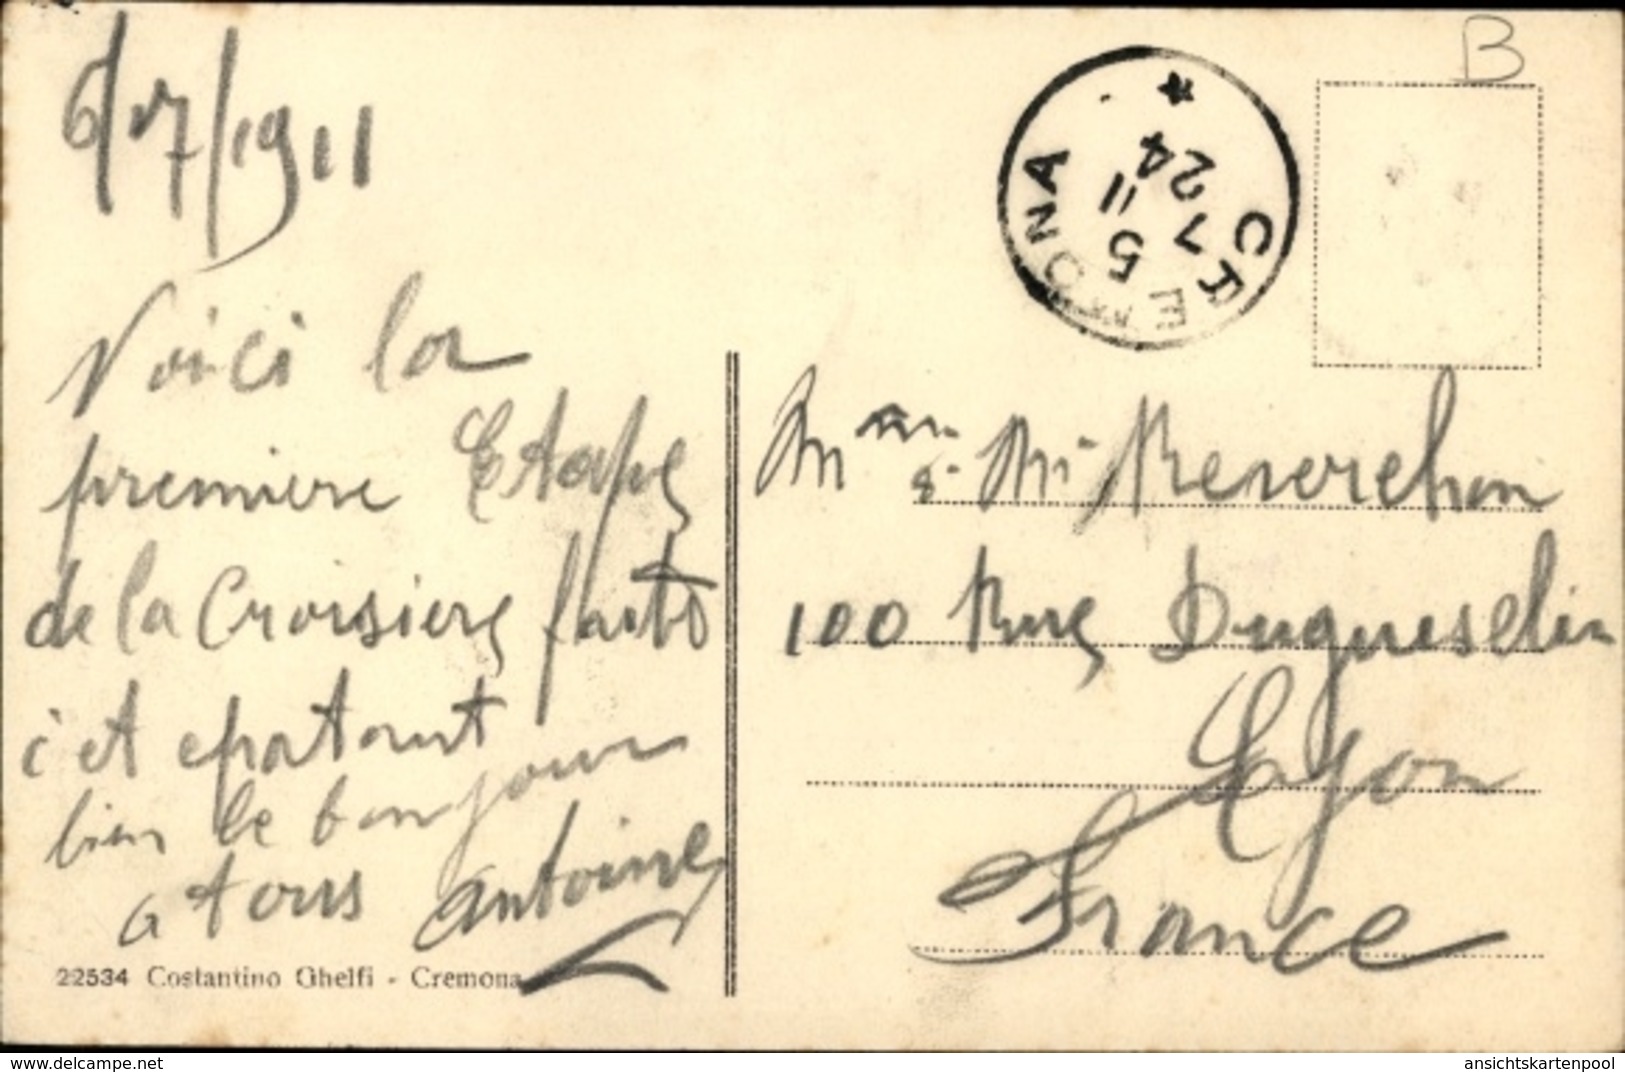 6/7/1911
Voici la
premiere Etape
de la Croisiere
c'et epatant
bien le bonjour
a tous Antoine
22534 Costantino Ghelfi - Cremona
B
CREMONA
5 7 11
24
Mme & Mr
100 Rue Dugueslin
Lyon
France
delcampe.net
ansichtskartenpool